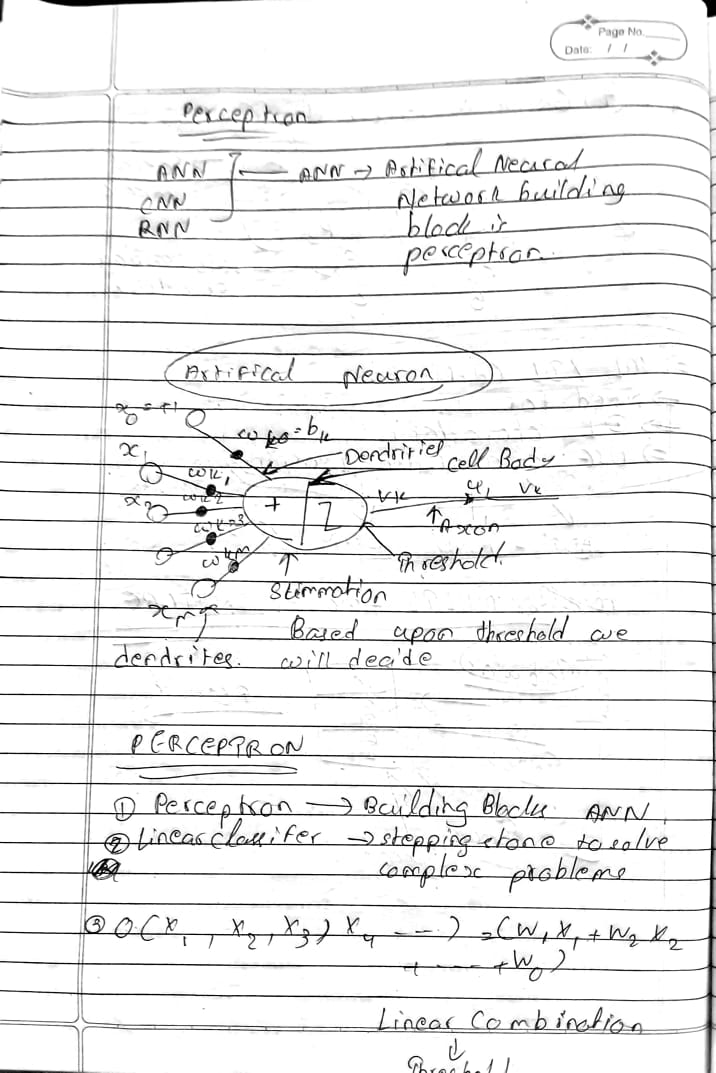 Page No.
Date: / /
Perceptron
ANN ANN → Artifical Neural
CNN Network building
RNN block is
perceptron.
Artifical Nearon
x0 = +1
wk0 = bk
x1
wk1
Dendrities
Cell Body
x2
wk2
wk=3
wkm
xm
+
Vk
φ1
Yk
Axon
Threshold.
Summation
Based upon threshold we
dendrites. will decide
PERCEPTRON
① Perceptron → Building Blocks ANN.
② Linear classifer → stepping stone to solve
complex problems
③ O(X1, X2, X3, X4 ---) = (W1X1 + W2X2
+ ---- + W0)
Linear Combination
↓
Threshold